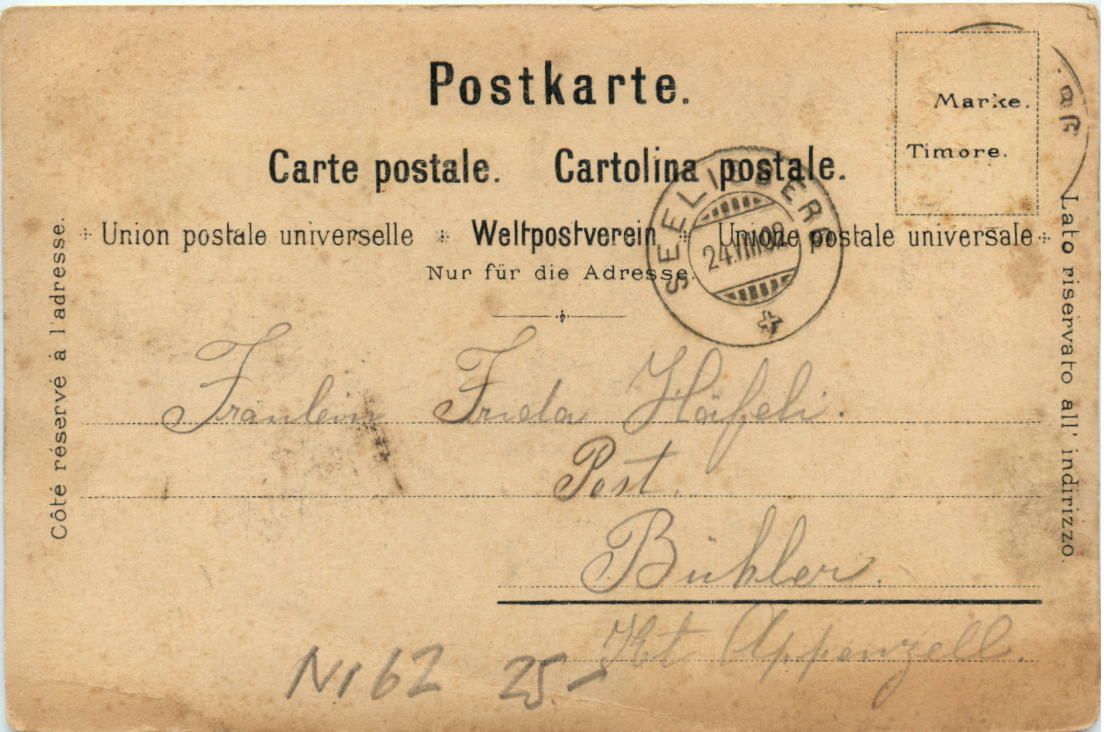 Postkarte.
Marke.
Timore.
Carte postale. Cartolina postale.
Union postale universelle * Weltpostverein * Unione postale universale
Nur für die Adresse.
SEELISBERG
24.VIII.02
Côté réservé à l'adresse.
Lato riservato all' indirizzo.
Fräulein Frieda Häfeli.
Post.
Bühler.
Kt Appenzell.
N162 25.-